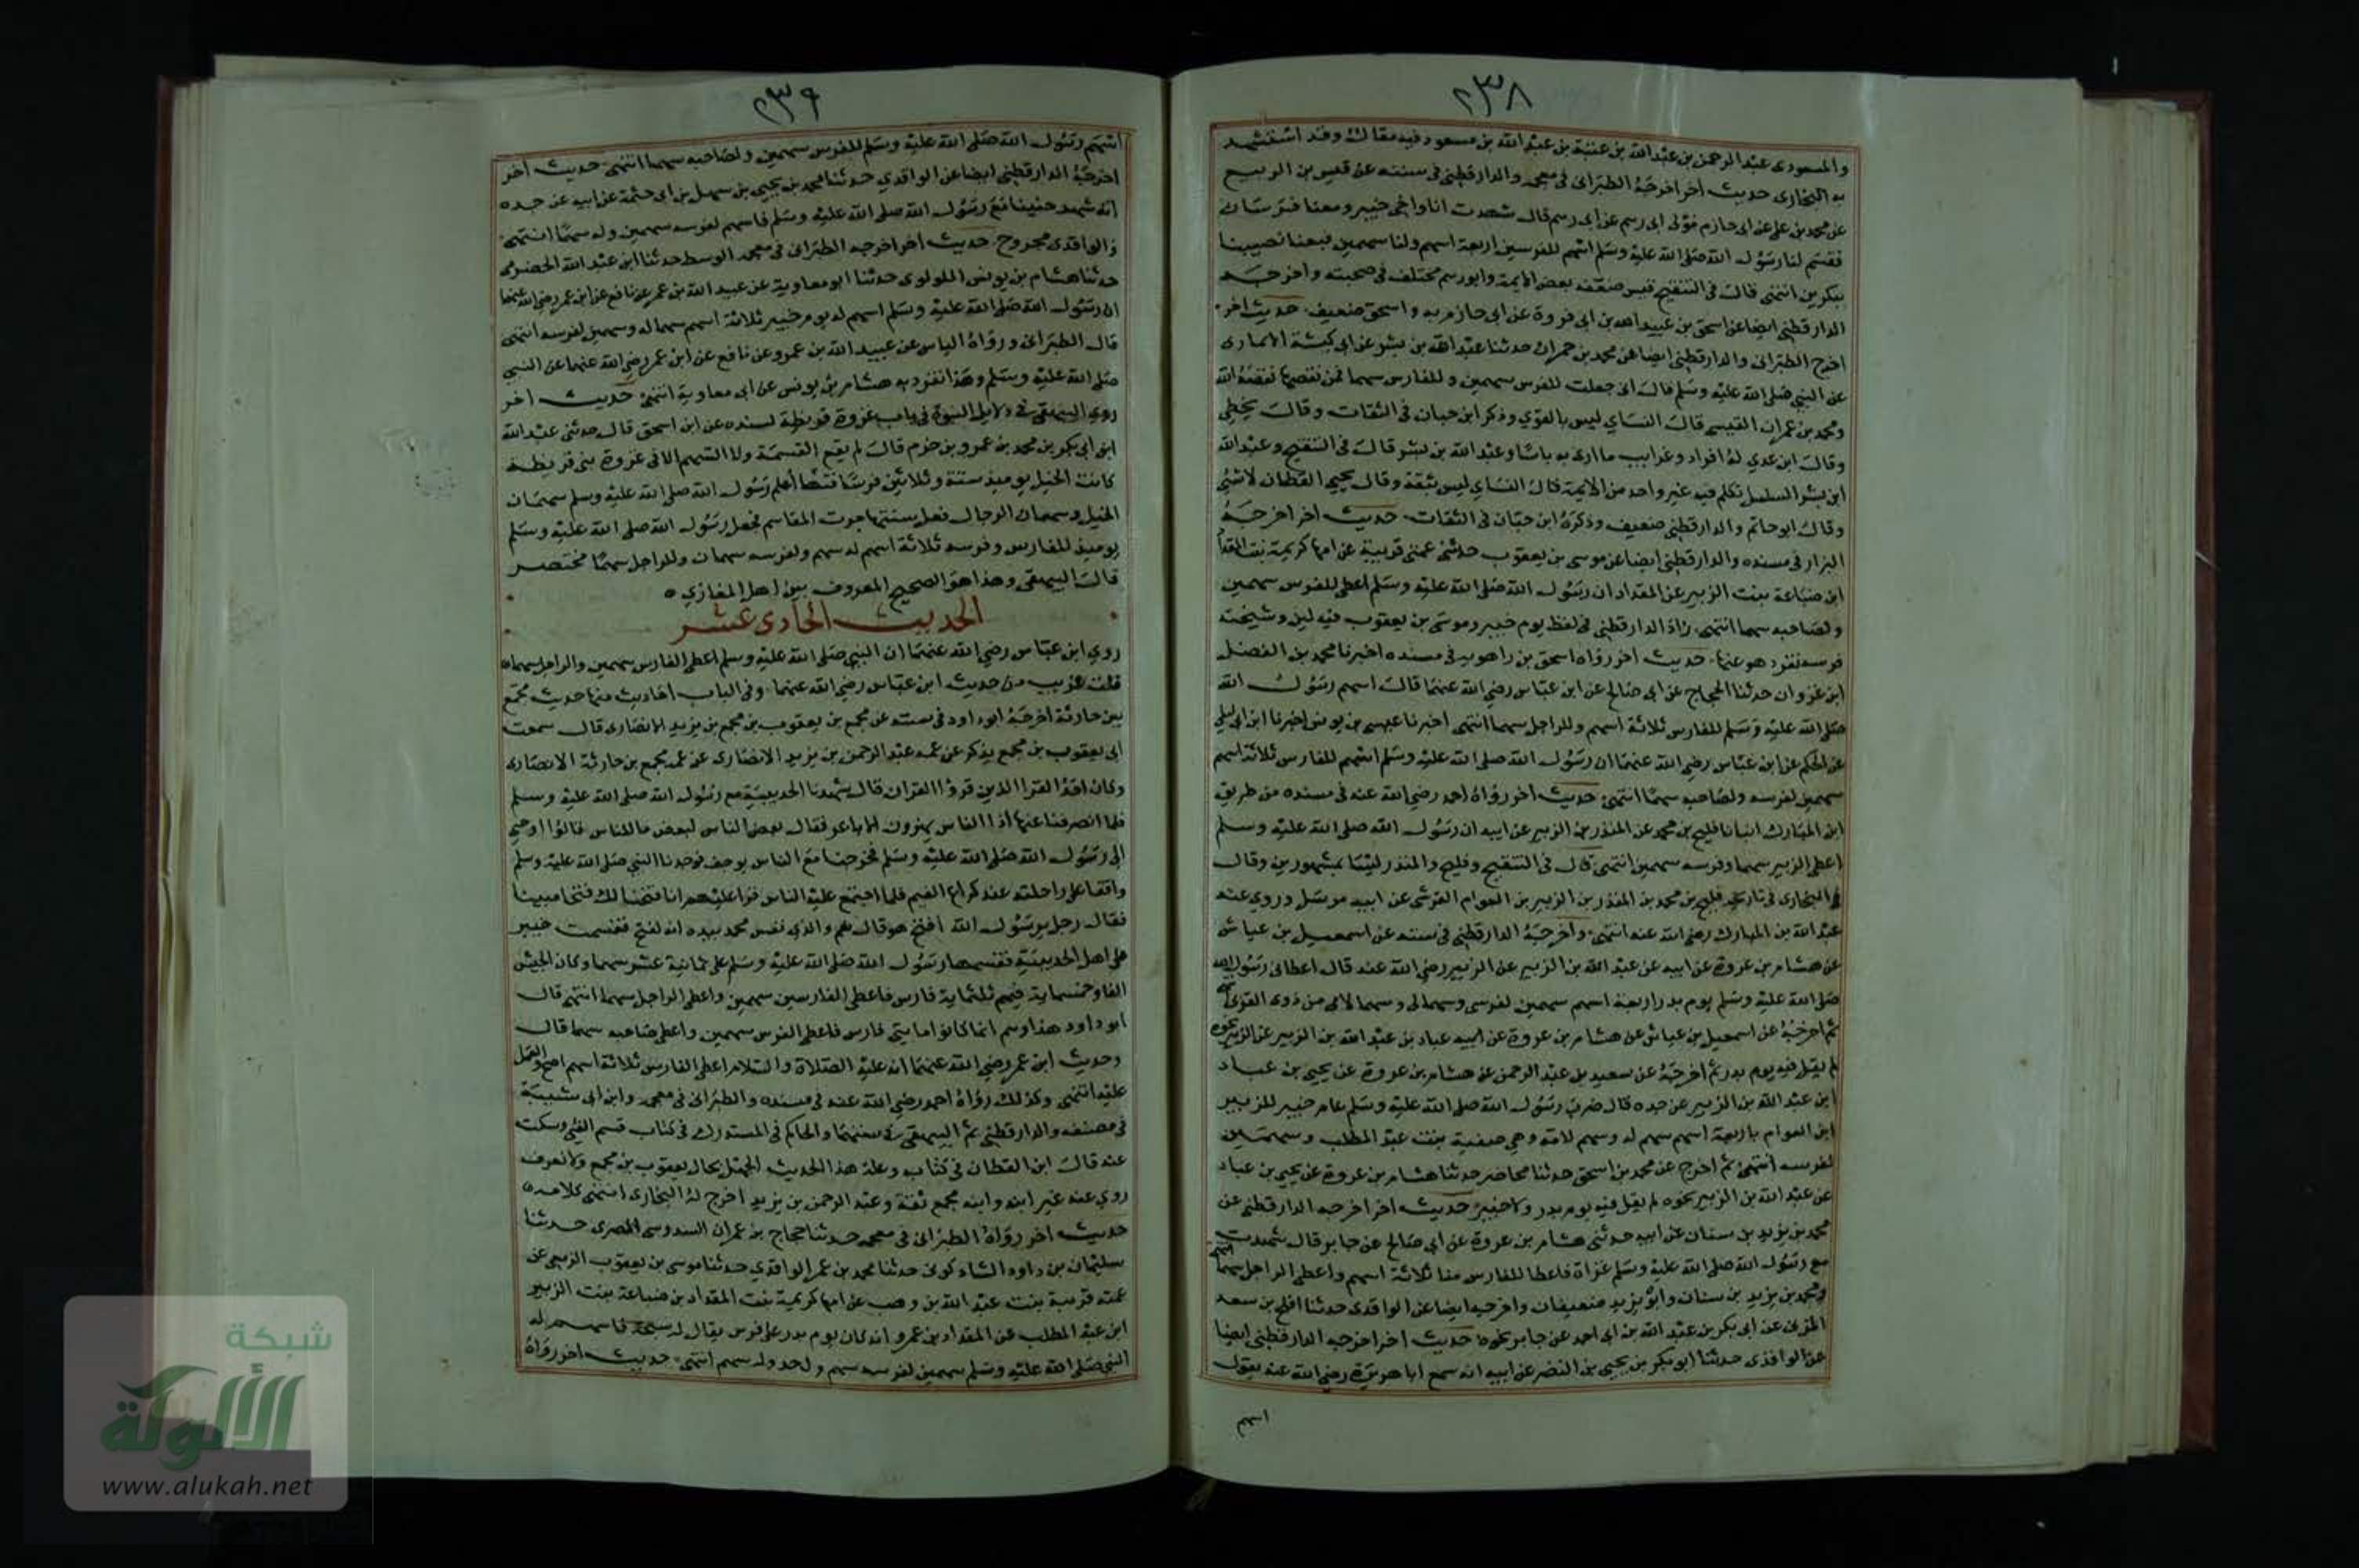 ٢٣٨
والمسعودى عبد الرحمن بن عبد الله بن عتبة بن عبد الله بن مسعود فيه مقال وقد استشهد
به البخارى حديث اخر اخرجه الطبرانى فى معجمه والدارقطنى فى سننه عن قيس بن الربيع
عن محمد بن على عن ابى حازم مولى ابى رهم عن ابى رهم قال شهدت انا واخى خيبر ومعنا فرسان
فقسم لنا رسول الله صلى الله عليه وسلم اسهم للفرسين اربعة اسهم ولنا سهمين فبعنا نصيبنا
ببكرين انتهى قال فى التنقيح قيس ضعفه بعض الايمة وابو رهم مختلف فى صحبته واخرجه
الدارقطنى ايضا عن اسحق بن عبيد الله بن ابى فروة عن ابى حازم به واسحق ضعيف حديث اخر
اخرج الطبرانى والدارقطنى ايضا عن محمد بن حمران حدثنا عبد الله بن بشر عن ابى كبشة الانمارى
عن النبي صلى الله عليه وسلم قال انى جعلت للفرس سهمين وللفارس سهما فمن نقصها نقصه الله
ومحمد بن عمران القيسى قال النساي ليس بالقوي وذكر ابن حبان فى الثقات وقال يخطى
وقال ابن عدي له افراد وغرايب ما ارى به باسا وعبد الله بن بشر قال فى التنقيح وعبد الله
ابن بشر السلسل تكلم فيه غير واحد من الايمة قال النساي ليس بثقة وقال يحيى القطان لا شى
وقال ابو حاتم والدارقطنى ضعيف وذكره ابن حبان فى الثقات حديث اخر اخرجه
البزار فى مسنده والدارقطنى ايضا عن موسى بن يعقوب حدثنى عمتى قريبة عن امها كريمة بنت المقداد
ابن ضباعة بنت الزبير عن المقداد ان رسول الله صلى الله عليه وسلم اعطى للفرس سهمين
ولصاحبه سهما انتهى زاد الدارقطنى فى لفظ يوم خيبر وموسى بن يعقوب فيه لين وشيخته
قريبة تفرد هو عنها حديث اخر رواه اسحق بن راهويه فى مسنده اخبرنا محمد بن الفضل
ابن غزوان حدثنا الحجاج عن ابى صالح عن ابن عباس رضى الله عنهما قال اسهم رسول الله
صلى الله عليه وسلم للفارس ثلاثة اسهم وللراجل سهما انتهى اخبرنا عيسى بن يونس اخبرنا ابن ابى ليلى
عن الحكم عن ابن عباس رضى الله عنهما ان رسول الله صلى الله عليه وسلم اسهم للفارس ثلاثة اسهم
سهمين لفرسه ولصاحبه سهما انتهى حديث اخر رواه احمد رضى الله عنه فى مسنده من طريق
ابن المبارك انبانا فليح بن محمد عن المنذر بن الزبير عن ابيه ان رسول الله صلى الله عليه وسلم
اعطى الزبير سهما وفرسه سهمين انتهى قال فى التنقيح وفليح والمنذر ليسا بمشهورين وقال
البخارى فى تاريخه فليح بن محمد بن المنذر بن الزبير بن العوام القرشى عن ابيه مرسل وروى عنه
عبد الله بن المبارك رضى الله عنه انتهى واخرجه الدارقطنى فى سننه عن اسمعيل بن عياش
عن هشام بن عروة عن ابيه عن عبد الله بن الزبير عن الزبير رضى الله عنه قال اعطانى رسول الله
صلى الله عليه وسلم يوم بدر اربعة اسهم سهمين لفرسى وسهما لى وسهما لامى من ذوى القربى
ثم اخرجه عن اسمعيل بن عياش عن هشام بن عروة عن ابيه عباد بن عبد الله بن الزبير عن الزبير نحوه
لم يقل فيه يوم بدر ثم اخرجه عن سعيد بن عبد الرحمن عن هشام بن عروة عن يحيى بن عباد
ابن عبد الله بن الزبير عن جده قال ضرب رسول الله صلى الله عليه وسلم عام خيبر للزبير
ابن العوام باربعة اسهم سهم له وسهم لامه وهى صفية بنت عبد المطلب وسهمين
لفرسه انتهى ثم اخرج عن محمد بن اسحق حدثنا محاضر حدثنا هشام بن عروة عن يحيى بن عباد
عن عبد الله بن الزبير نحوه لم يقل فيه يوم بدر ولا خيبر حديث اخر اخرجه الدارقطنى عن
محمد بن يزيد بن سنان عن ابيه حدثنى هشام بن عروة عن ابى صالح عن جابر قال شهدت
مع رسول الله صلى الله عليه وسلم غزاة فاعطا للفارس منا ثلاثة اسهم واعطى الراجل سهما انتهى
ومحمد بن يزيد بن سنان وابوه يزيد ضعيفان واخرجه ايضا عن الواقدى حدثنا افلح بن سعد
المزنى عن ابى بكر بن عبد الله بن ابى احمد عن جابر نحوه حديث اخر اخرجه الدارقطنى ايضا
عن الواقدى حدثنا ابو بكر بن يحيى بن النضر عن ابيه انه سمع ابا هريرة رضى الله عنه يقول
اسهم
٢٣٩
اسهم رسول الله صلى الله عليه وسلم للفرس سهمين ولصاحبه سهما انتهى حديث اخر
اخرجه الدارقطنى ايضا عن الواقدي حدثنا محمد بن يحيى بن سهل بن ابى حثمة عن ابيه عن جده
انه شهد حنينا مع رسول الله صلى الله عليه وسلم فاسهم لفرسه سهمين وله سهما انتهى
والواقدى مجروح حديث اخر اخرجه الطبرانى فى معجمه الوسط حدثنا ابن عبد الله الحضرمى
حدثنا هشام بن يونس اللولوى حدثنا ابو معاوية عن عبيد الله بن عمر عن نافع عن ابن عمر رضى الله عنهما
ان رسول الله صلى الله عليه وسلم اسهم له يوم خيبر ثلاثة اسهم سهما له وسهمين لفرسه انتهى
قال الطبرانى ورواه الياس عن عبيد الله بن عمرو عن نافع عن ابن عمر رضى الله عنهما عن النبي
صلى الله عليه وسلم وهذا تفرد به هشام بن يونس عن ابى معاوية انتهى حديث اخر
روى البيهقى فى دلايل النبوة فى باب غزوة قريظة بسنده عن ابن اسحق قال حدثنى عبد الله
ابن ابى بكر بن محمد بن عمرو بن حزم قال لم يقع القسمة ولا السهم الا فى غزوة بنى قريظة
كانت الخيل يوميذ ستة وثلاثين فرسا ففيها اعلم رسول الله صلى الله عليه وسلم سهمان
الخيل وسهمان الرجال فعلى سنتها جرت المقاسم فجعل رسول الله صلى الله عليه وسلم
يوميذ للفارس وفرسه ثلاثة اسهم له سهم ولفرسه سهمان وللراجل سهما مختصر
قال البيهقى وهذا هو الصحيح المعروف بين اهل المغازي ه
الحديث الحادى عشر
روي ابن عباس رضي الله عنهما ان النبي صلى الله عليه وسلم اعطى الفارس سهمين والراجل سهما
قلت غريب من حديث ابن عباس رضي الله عنهما وفى الباب احاديث منها حديث مجمع
بن حارثة اخرجه ابو داود فى سننه عن مجمع بن يعقوب بن مجمع بن يزيد الانصارى قال سمعت
ابى يعقوب بن مجمع يذكر عن عمه عبد الرحمن بن يزيد الانصارى عن عمه مجمع بن حارثة الانصارى
وكان احد القرا الذين قرؤا القران قال شهدنا الحديبية مع رسول الله صلى الله عليه وسلم
فلما انصرفنا عنها اذا الناس يهزون الاباعر فقال بعض الناس لبعض ما للناس قالوا اوحى
الى رسول الله صلى الله عليه وسلم فخرجنا مع الناس نوجف فوجدنا النبي صلى الله عليه وسلم
واقفا على راحلته عند كراع الغميم فلما اجتمع عليه الناس قرا عليهم انا فتحنا لك فتحا مبينا
فقال رجل يرسول الله افتح هو قال نعم والذى نفس محمد بيده انه لفتح فقسمت خيبر
على اهل الحديبية فقسمها رسول الله صلى الله عليه وسلم على ثمانية عشر سهما وكان الجيش
الفا وخمسماية فيهم ثلثماية فارس فاعطى الفارسين سهمين واعطى الراجل سهما انتهى قال
ابو داود هذا وهم انما كانوا مايتى فارس فاعطى الفرس سهمين واعطى صاحبه سهما قال
وحديث ابن عمر رضي الله عنهما انه عليه الصلاة والسلام اعطى الفارس ثلاثة اسهم اصح والعمل
عليه انتهى وكذلك رواه احمد رضي الله عنه فى مسنده والطبرانى فى معجمه وابن ابى شيبة
فى مصنفه والدارقطنى ثم البيهقى فى سننهما والحاكم فى المستدرك فى كتاب قسم الفئ وسكت
عنه قال ابن القطان فى كتابه وعلة هذا الحديث الجهل بحال يعقوب بن مجمع ولا نعرف
روي عنه غير ابنه وابنه مجمع ثقة وعبد الرحمن بن يزيد اخرج له البخارى انتهى كلامه ه
حديث اخر رواه الطبرانى فى معجمه حدثنا حجاج بن عمران السدوسى المصرى حدثنا
سليمان بن داود الشاذكونى حدثنا محمد بن عمر الواقدي حدثنا موسى بن يعقوب الزمعى عن
عمته قريبة بنت عبد الله بن وهب عن امها كريمة بنت المقداد بن ضباعة بنت الزبير
ابن عبد المطلب عن المقداد بن عمرو انه كان يوم بدر على فرس يقال له سبحة فاسهم له
النبي صلى الله عليه وسلم سهمين لفرسه سهم واحد وله سهم انتهى حديث اخر رواه
شبكة
الألوكة
www.alukah.net